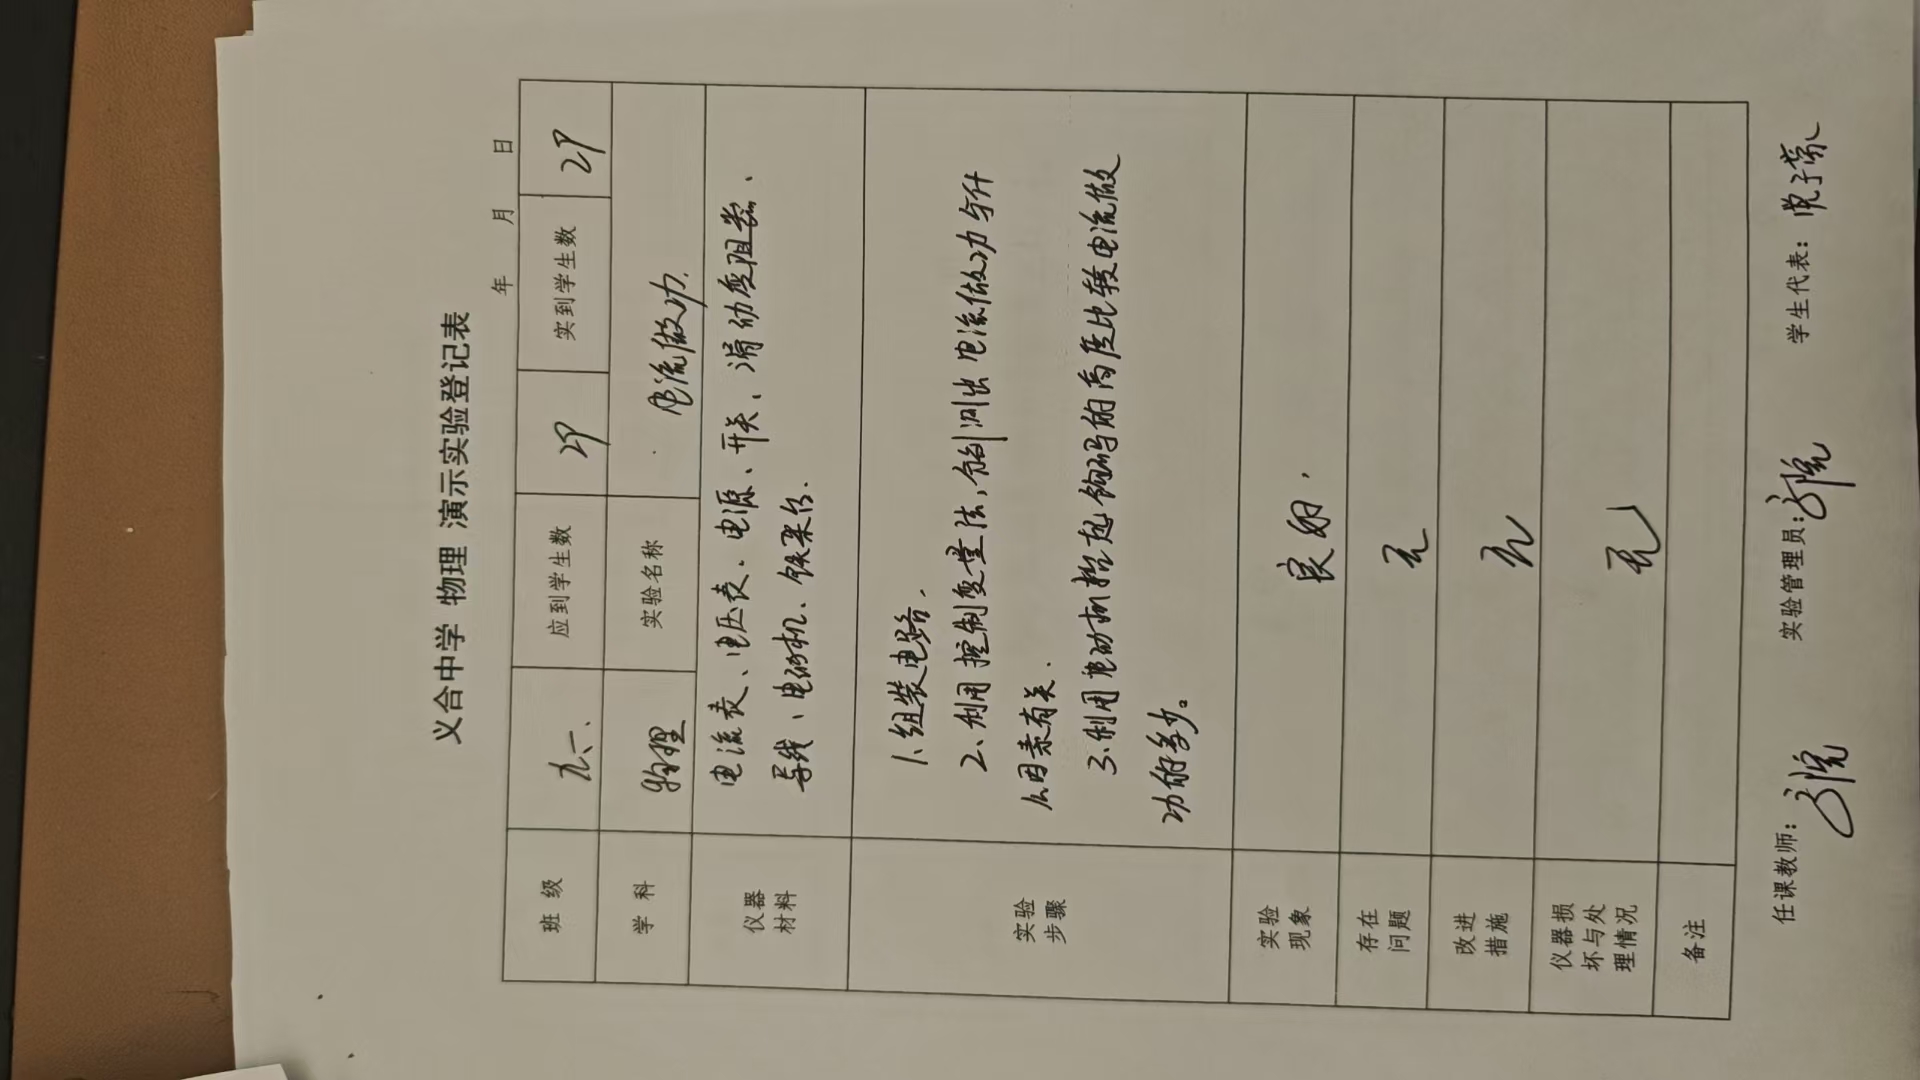 义合中学 物理 演示实验登记表
年 月 日
班 级 九一、 应到学生数 29 实到学生数 29
学 科 物理 实验名称 电流做功.
仪器
材料
电流表、电压表、电源、开关、滑动变阻器、
导线、电动机、铁架台.
实验
步骤
1、组装电路.
2、利用控制变量法,分别测出电流做功与什
么因素有关.
3、利用电动机拉起钩码的高度比较电流做
功的多少。
实验
现象
良好.
存在
问题
无
改进
措施
无
仪器损
坏与处
理情况
无
备注
任课教师: 实验管理员: 学生代表: